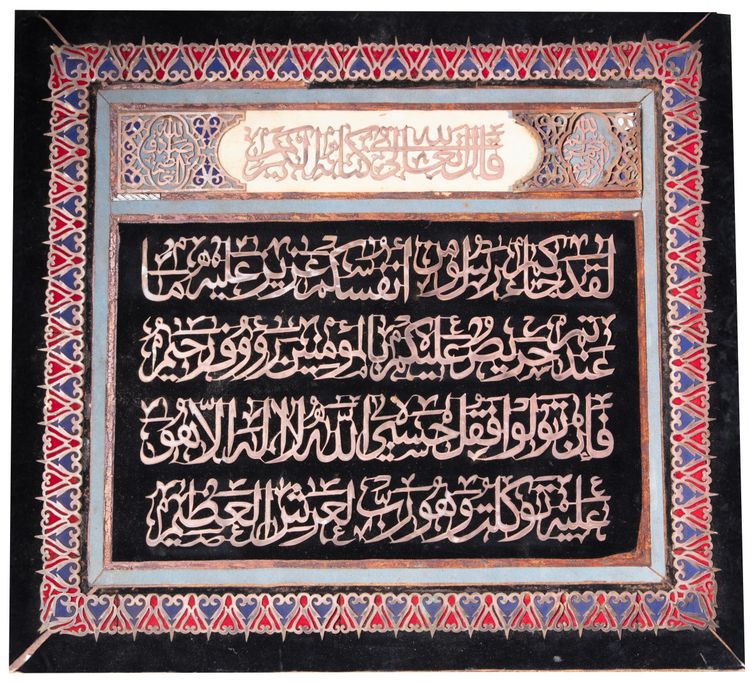 قال الله تعالى في كتابه الكريم
لقد جاءكم رسول من أنفسكم عزيز عليه ما
عنتم حريص عليكم بالمؤمنين رؤوف رحيم
فإن تولوا فقل حسبي الله لا إله إلا هو
عليه توكلت وهو رب العرش العظيم